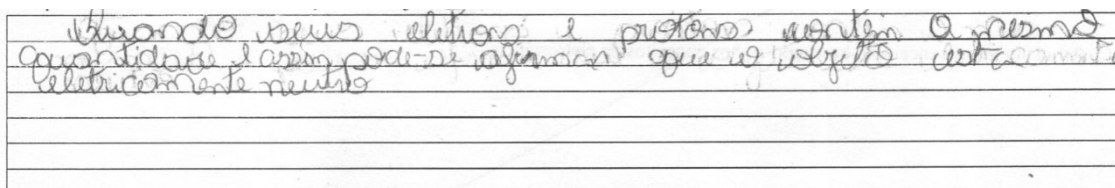 Quando seus eletrons e protons contém a mesma
quantidade e assim pode-se afirmar que o objeto está
eletricamente neutro